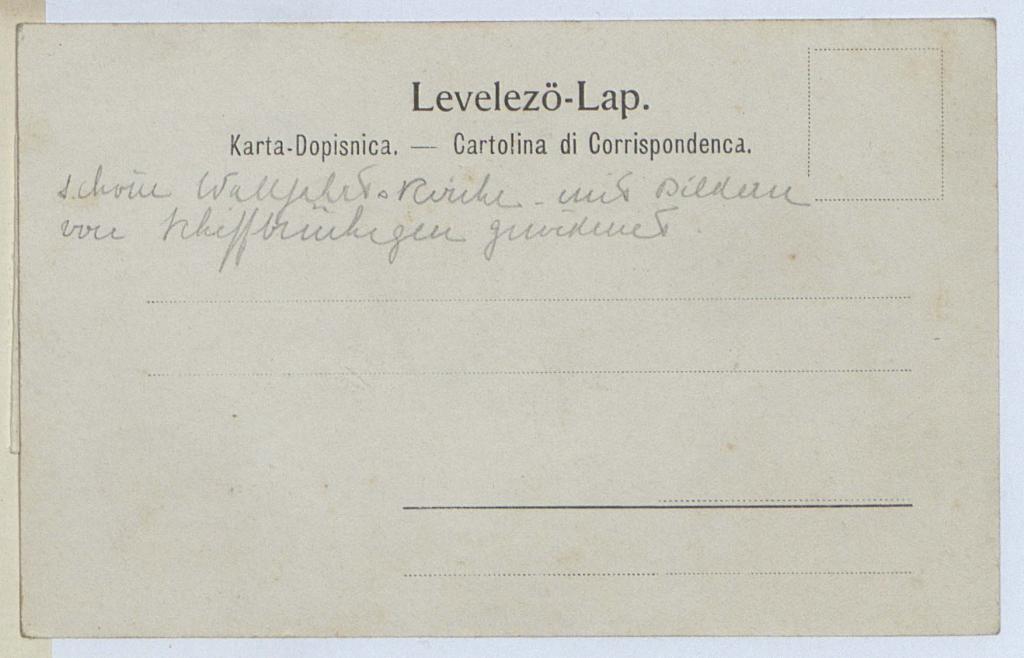 Levelezö-Lap.
Karta-Dopisnica. — Cartolina di Corrispondenca.
schöne Wallfahrtskirche - mit Bildern
von Schiffbrüchigen gewidmet.